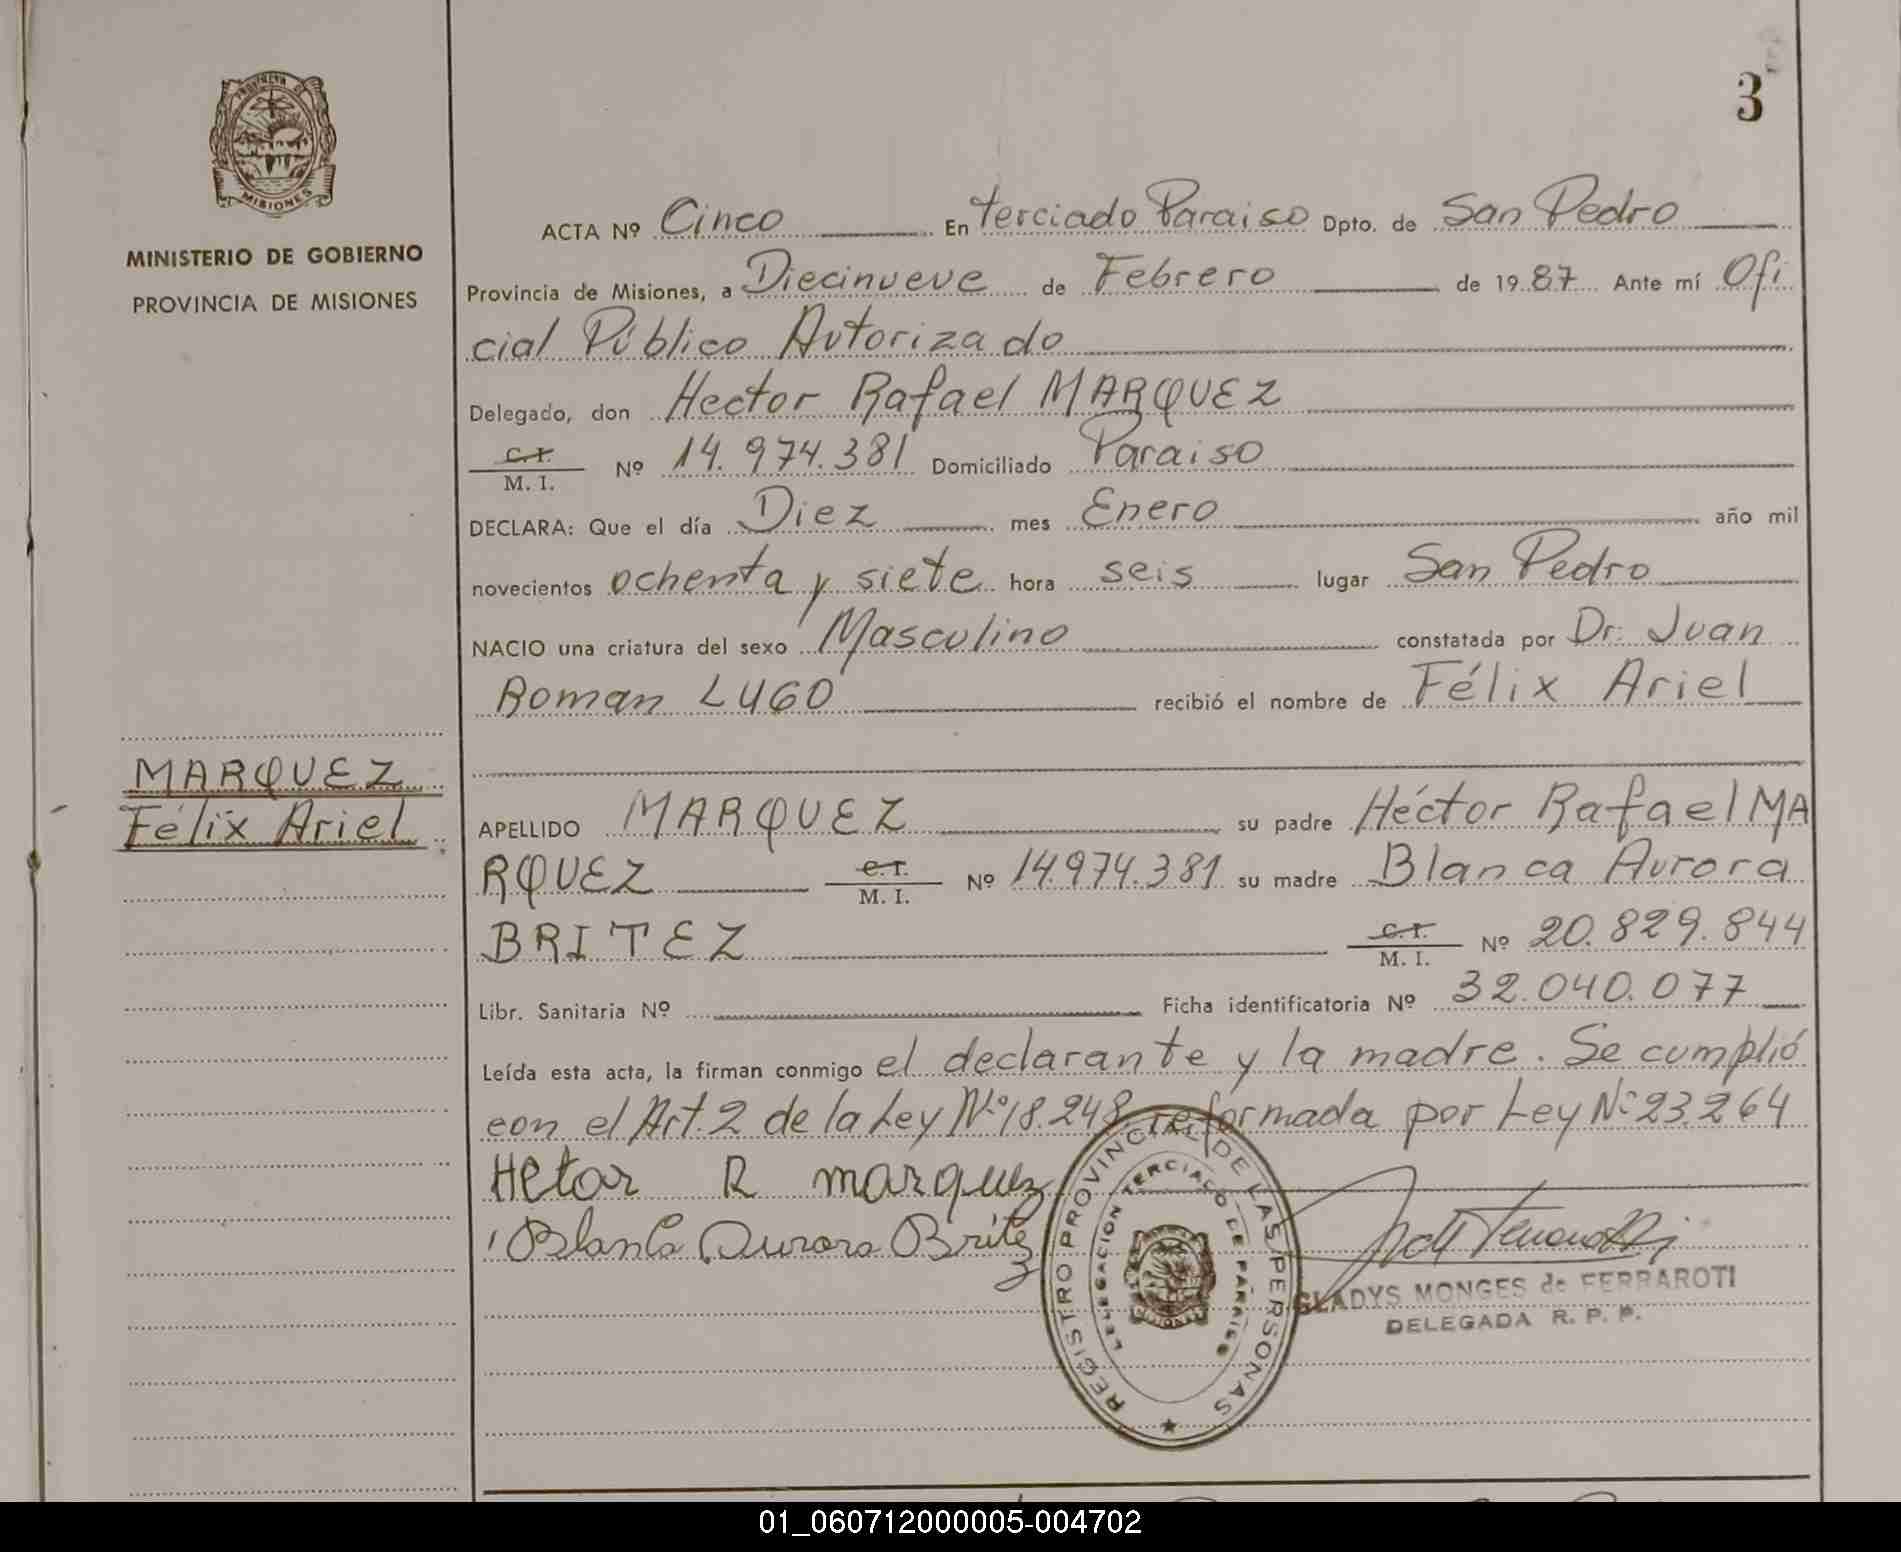 3
PROVINCIA DE
MISIONES
MINISTERIO DE GOBIERNO
PROVINCIA DE MISIONES
MARQUEZ
Félix Ariel
ACTA Nº Cinco En Terciado Paraiso Dpto. de San Pedro
Provincia de Misiones, a Diecinueve de Febrero de 1987 Ante mí Ofi
cial Público Autorizado
Delegado, don Hector Rafael MARQUEZ
C. I.
M. I. Nº 14.974.381 Domiciliado Paraiso
DECLARA: Que el día Diez mes Enero año mil
novecientos ochenta y siete hora seis lugar San Pedro
NACIO una criatura del sexo Masculino constatada por Dr. Juan
Roman LUGO recibió el nombre de Félix Ariel
APELLIDO MARQUEZ su padre Héctor Rafael MA
RQUEZ C. I. M. I. Nº 14.974.381 su madre Blanca Aurora
BRITEZ C. I. M. I. Nº 20.829.844
Libr. Sanitaria Nº Ficha identificatoria Nº 32.040.077
Leída esta acta, la firman conmigo el declarante y la madre. Se cumplió
con el Art. 2 de la Ley Nº 18.248 reformada por Ley Nº 23.264
Hetor R marquez
Blanca Aurora Britez
REGISTRO PROVINCIAL DE LAS PERSONAS
DELEGACION TERCIADO DE PARAISO
GLADYS MONGES de FERRAROTI
DELEGADA R. P. P.
01_060712000005-004702